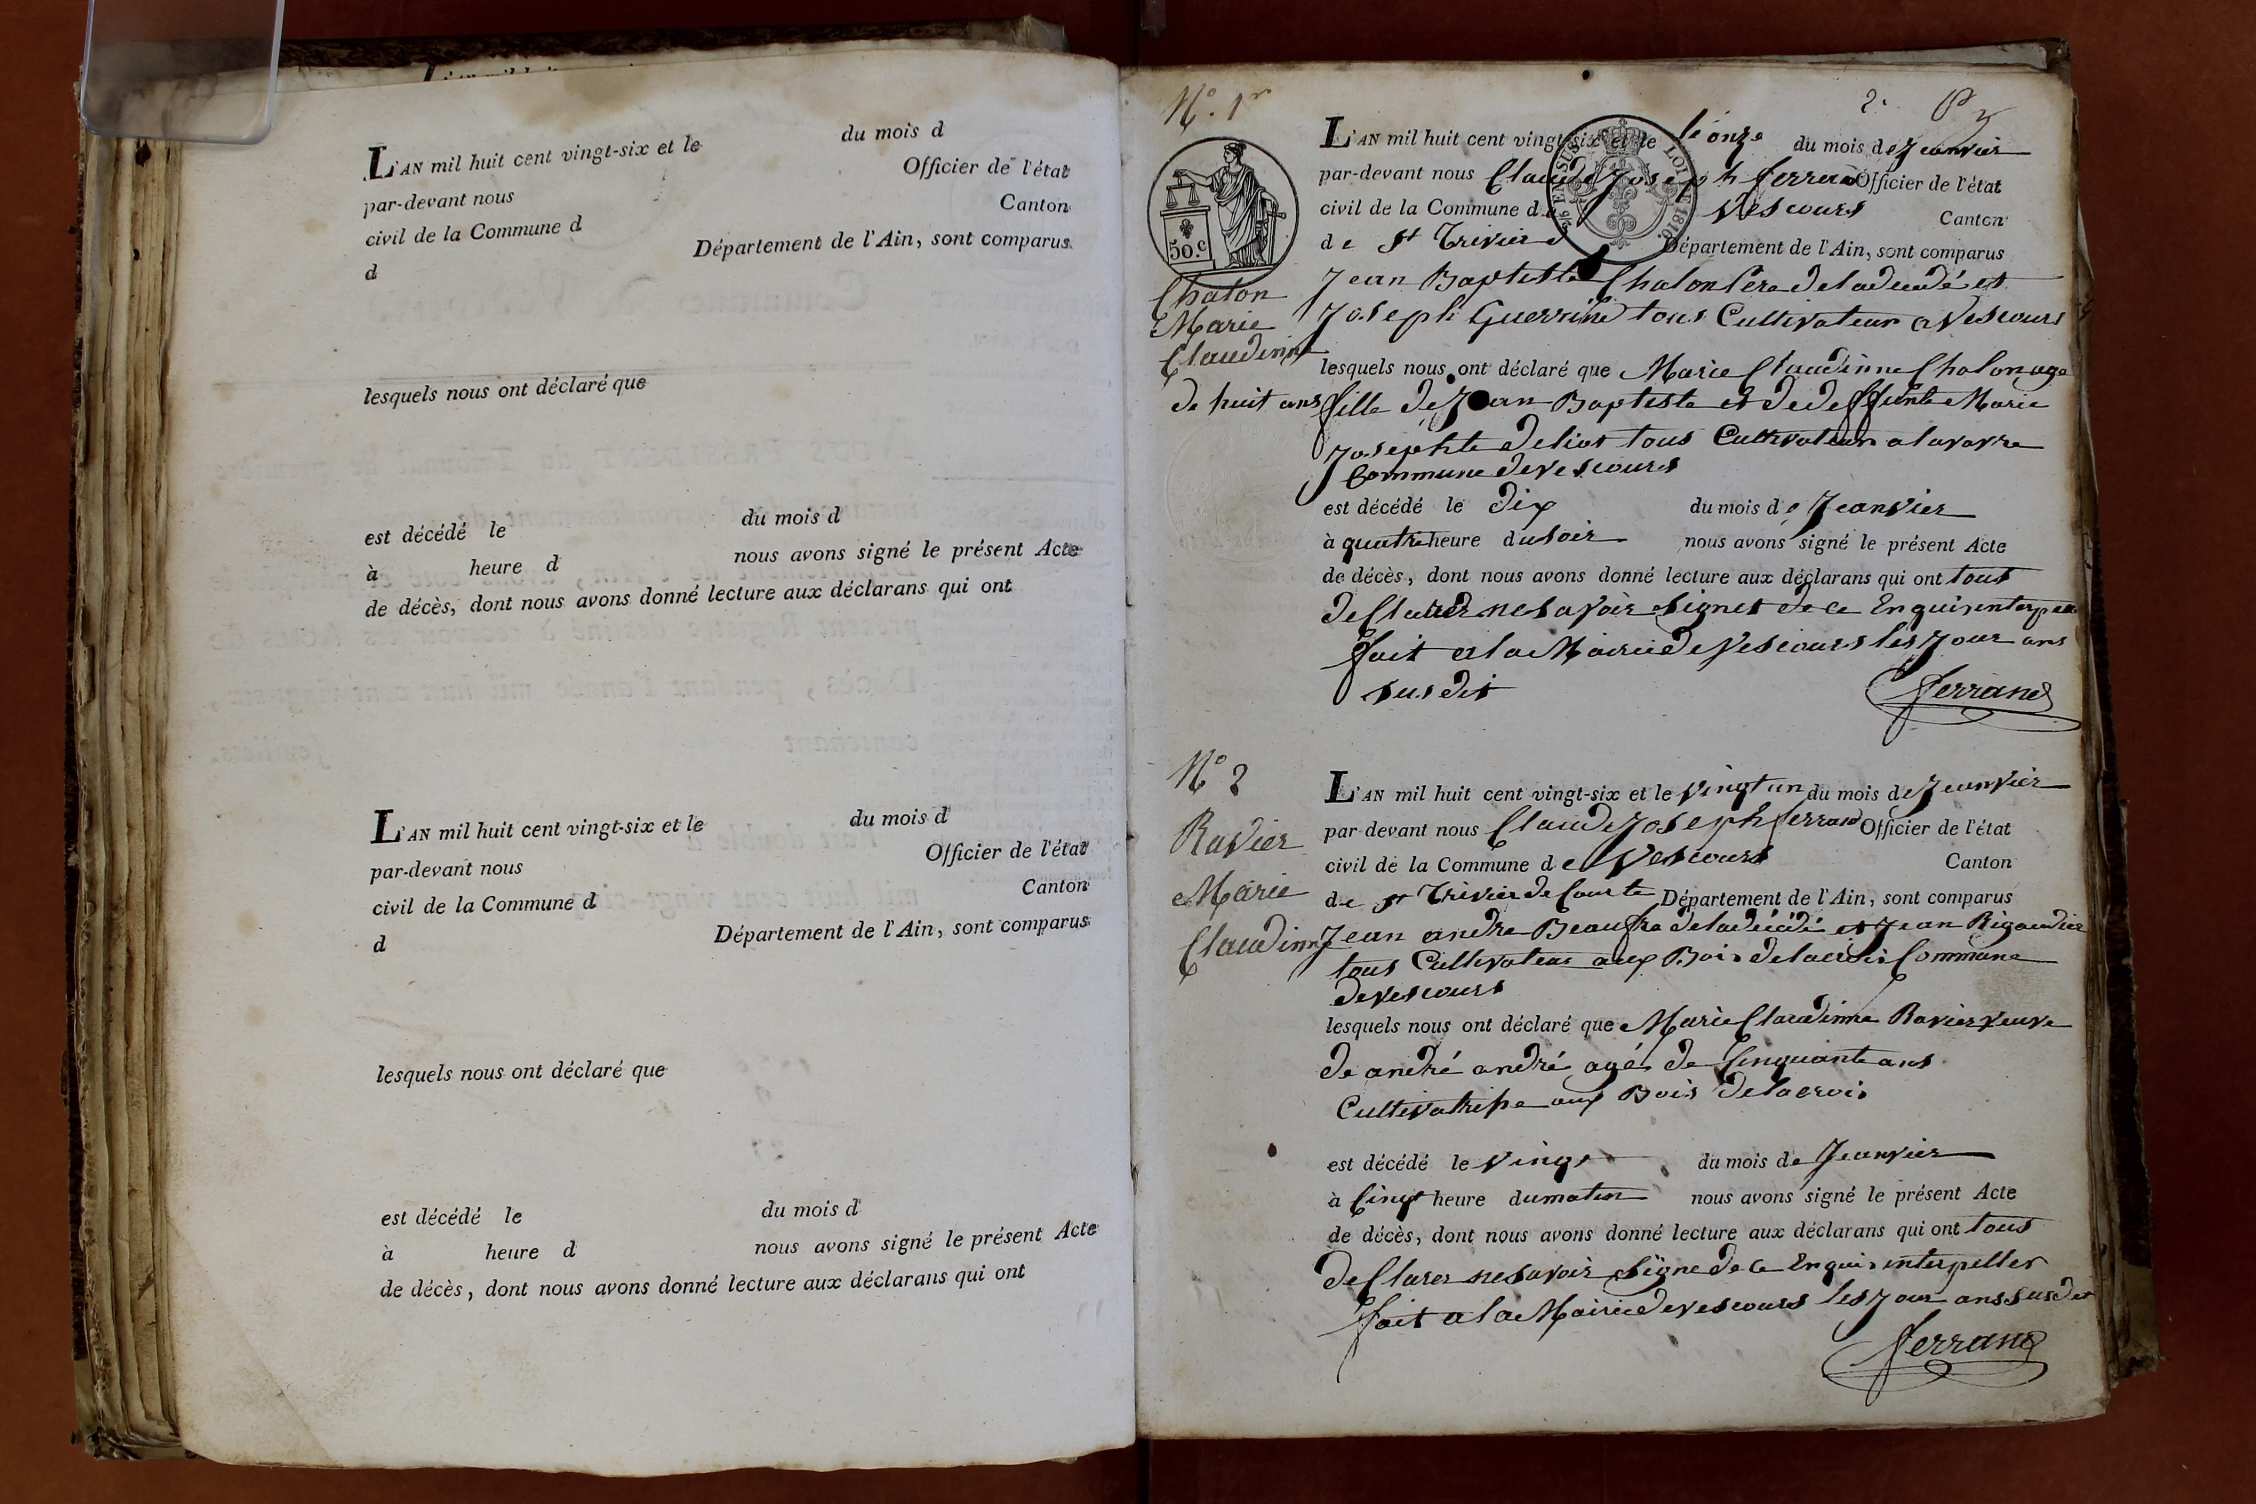 L'AN mil huit cent vingt-six et le du mois d
par-devant nous Officier de l'état
civil de la Commune d Canton
d Département de l'Ain, sont comparus
lesquels nous ont déclaré que
est décédé le du mois d
à heure d nous avons signé le présent Acte
de décès, dont nous avons donné lecture aux déclarans qui ont
L'AN mil huit cent vingt-six et le du mois d
par-devant nous Officier de l'état
civil de la Commune d Canton
d Département de l'Ain, sont comparus
lesquels nous ont déclaré que
est décédé le du mois d
à heure d nous avons signé le présent Acte
de décès, dont nous avons donné lecture aux déclarans qui ont
2.
N.° 1er
50.c
LOI DE 1816.
Chalon
Marie
Claudinne
L'AN mil huit cent vingt-six et le le onze du mois de Jeanvier
par-devant nous Claude Joseph ferrand Officier de l'état
civil de la Commune de Vescours Canton
de St Trivier d Département de l'Ain, sont comparus
Jean Baptiste Chalon Pere de la decedé et
Joseph Guerrin tous Cultivateur a Vescours
lesquels nous ont déclaré que Marie Claudinne Chalon age
de huit ans fille de Jean Baptiste et de deffunte Marie
Josephte Deliot tous Cultivateur a lavavre
Commune de vescours
est décédé le dix du mois de Jeanvier
à quatre heure du soir nous avons signé le présent Acte
de décès, dont nous avons donné lecture aux déclarans qui ont tous
declarer ne savoir signer de ce Enquis interpelle
fait a la Mairie de Vescours les jour ans
susdit
ferrand
N° 2
Ravier
Marie
Claudinne
L'AN mil huit cent vingt-six et le vingt un du mois de Jeanvier
par devant nous Claude Joseph ferrand Officier de l'état
civil de la Commune de Vescours Canton
de St Trivier de Courte Département de l'Ain, sont comparus
Jean andre Beaufre de la décédé et Jean Rigaudier
tous Cultivateur aux Bois de la croix Commune
de vescours
lesquels nous ont déclaré que Marie Claudinne Ravier veuve
de andré andré agé de Cinquante ans
Cultivatrisse aux Bois de la crois
est décédé le vingt du mois de Jeanvier
à Cinq heure du matin nous avons signé le présent Acte
de décès, dont nous avons donné lecture aux déclarans qui ont tous
declarer ne savoir signe de ce Enquis interpeller
fait a la Mairie de vescours les jour ans susdit
ferrand